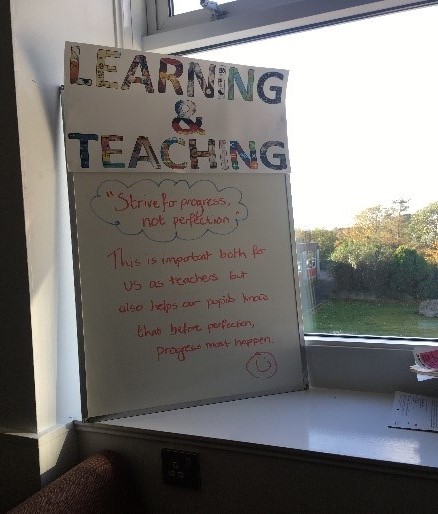 LEARNING
&
TEACHING
"Strive for progress,
not perfection."
This is important both for
us as teachers but
also helps our pupils know
that before perfection,
progress must happen.